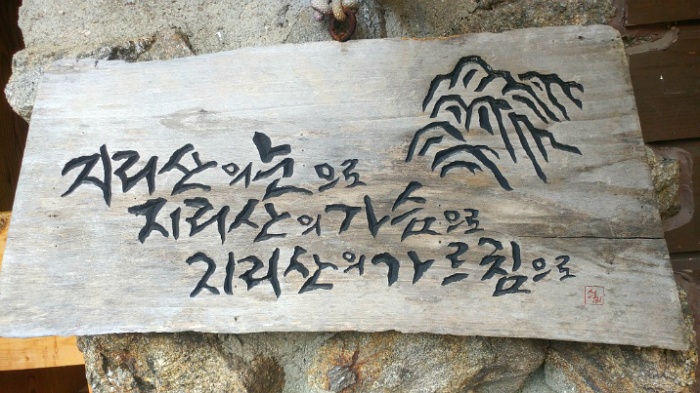 지리산의눈으로
지리산의가슴으로
지리산의가르침으로